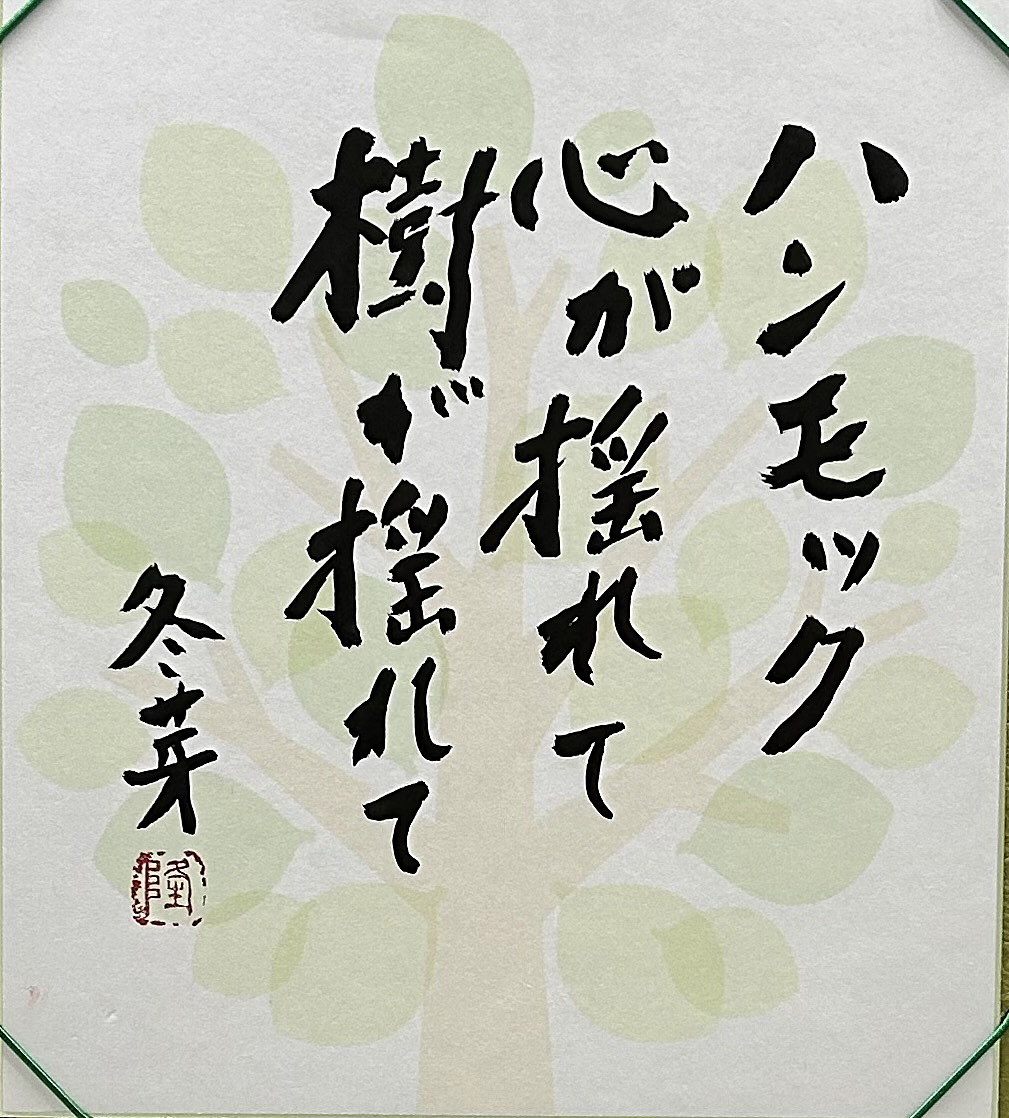 ハンモック
心が揺れて
樹が揺れて
冬芽
隆